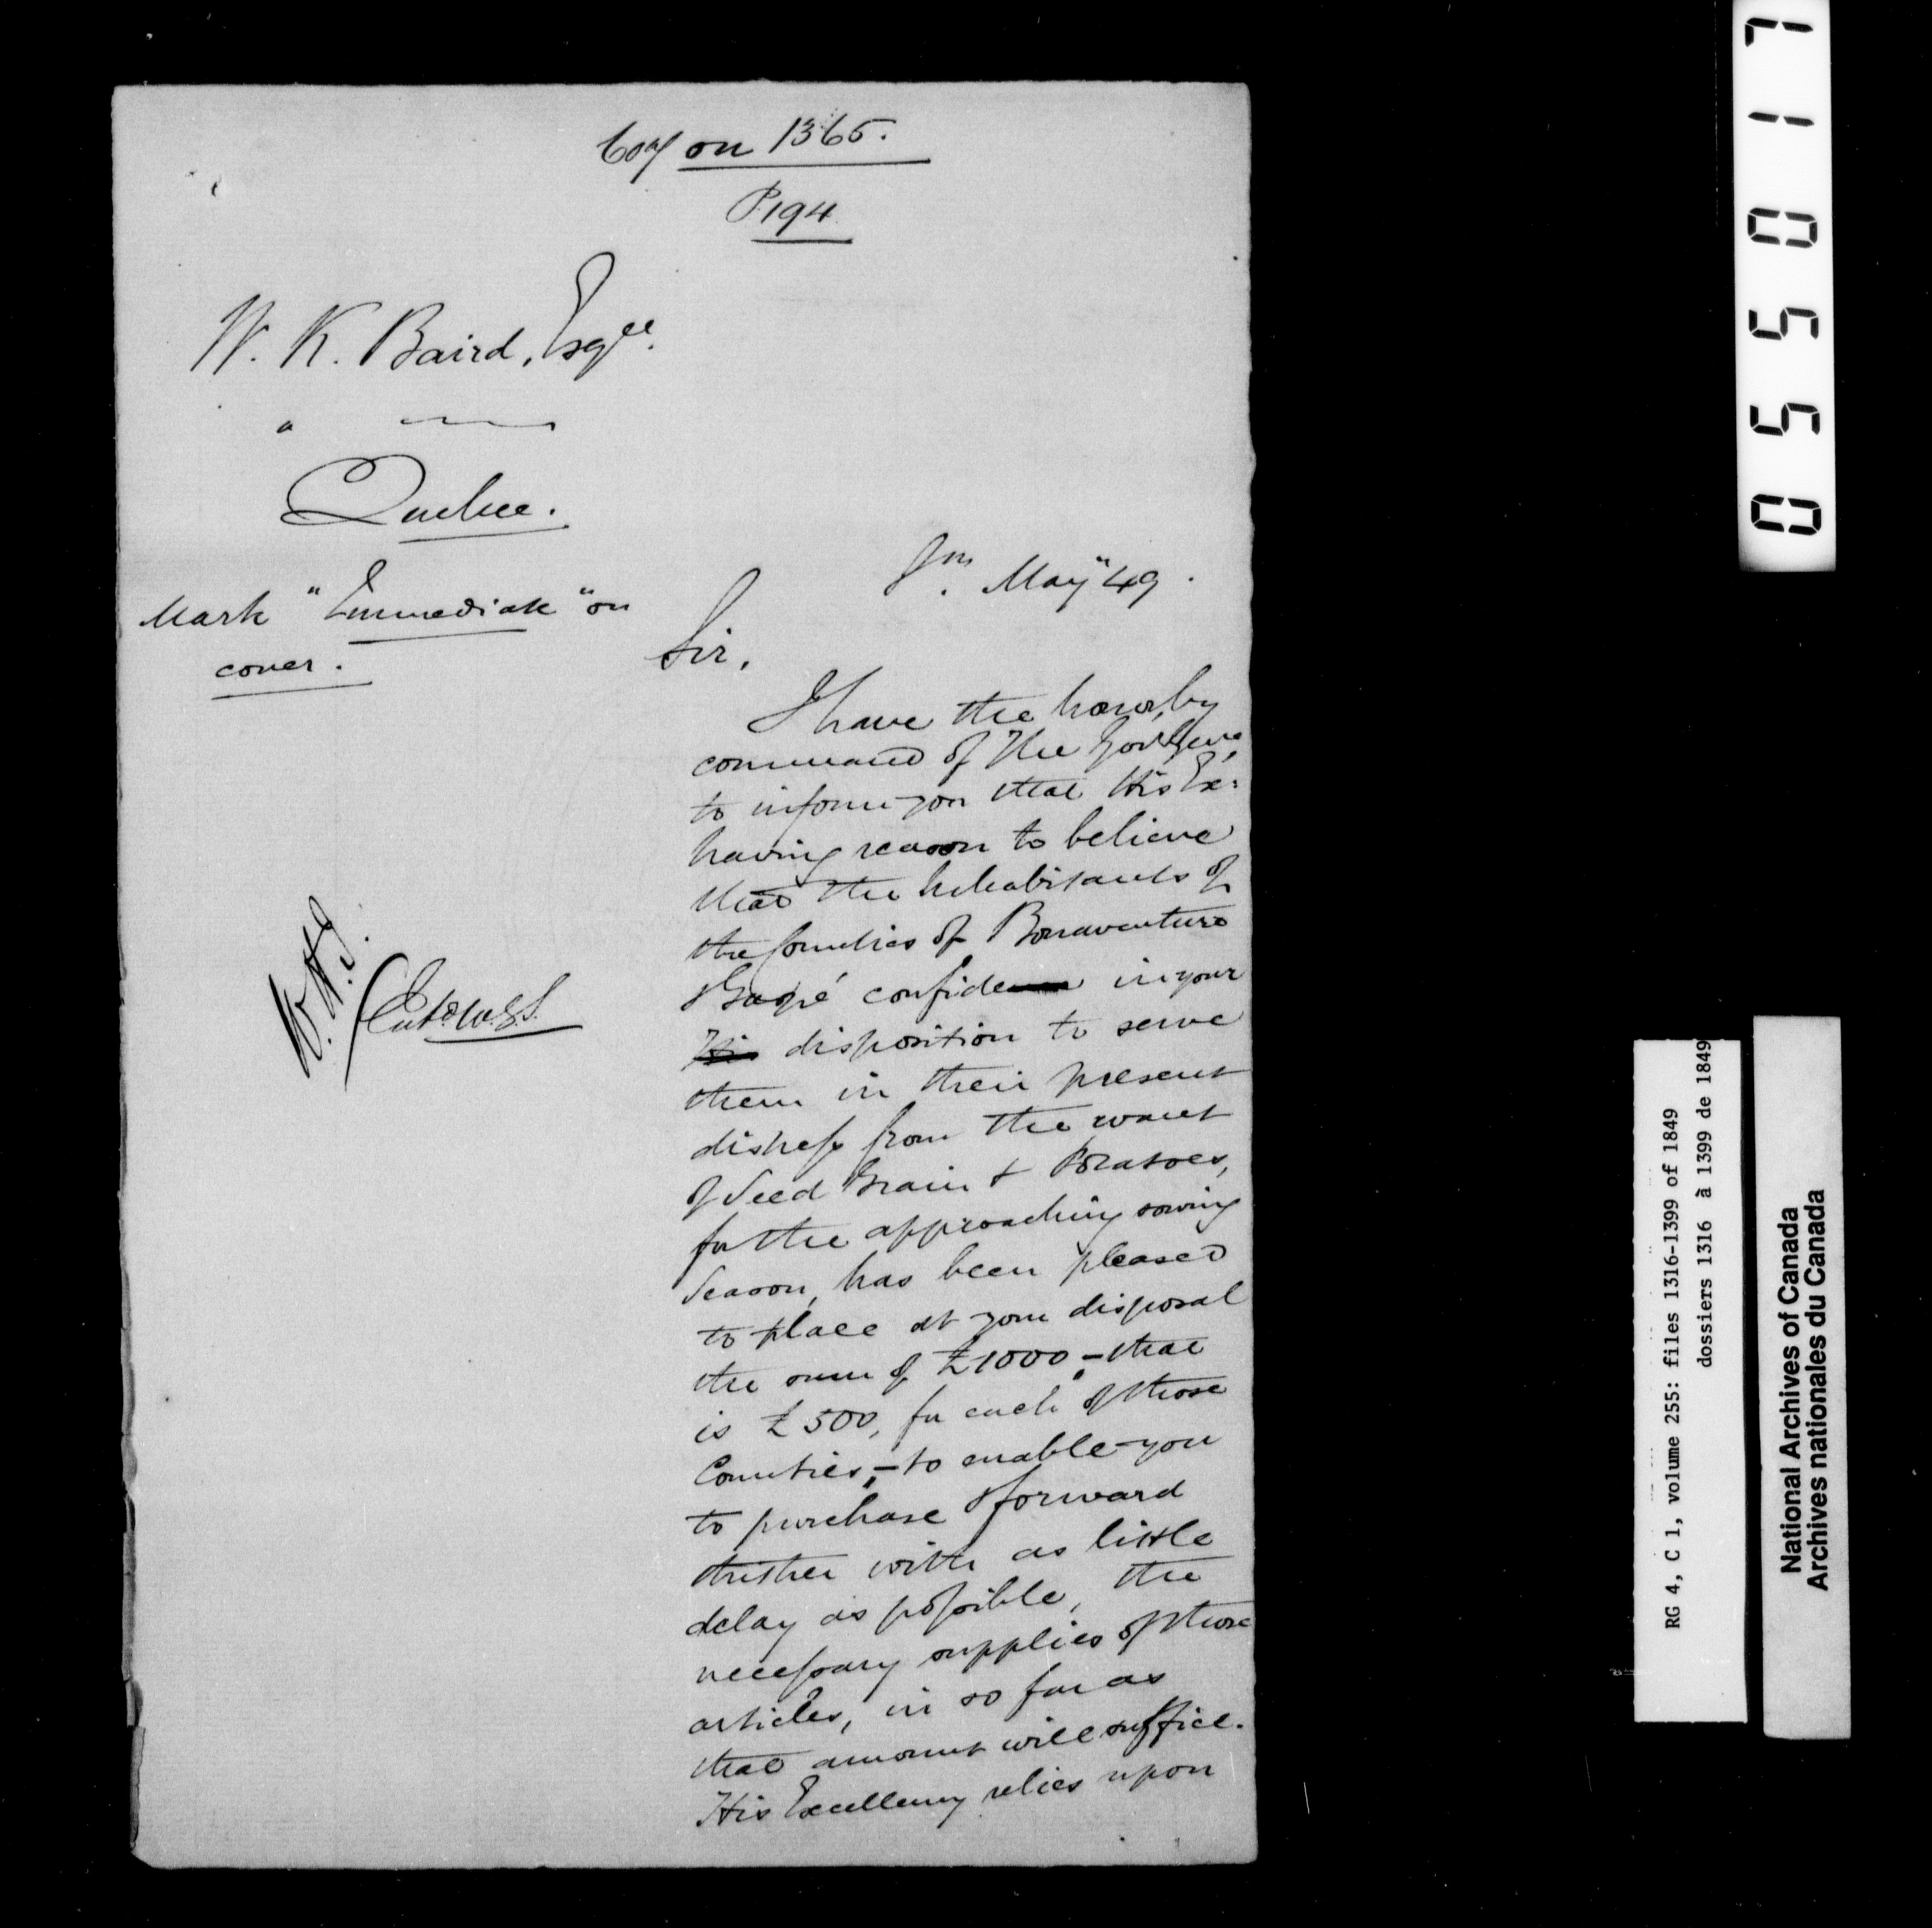 on 1365.
P.194
W. K. Baird, Esqre.
Quebec.
May 49.
Mark "Immediate" on
cover.
Sir,
I have the honor, by
command of The Gov Genl,
to inform you that His Ex:
having reason to believe
that the Inhabitants of
the Counties of Bonaventure
& Gaspé confide in your
disposition to serve
them in their present
distress from the want
of Seed Grain & Potatoes,
for the approaching sowing
Season, has been pleased
to place at your disposal
the sum of £1000,- that
is £500, for each of those
Counties,- to enable you
to purchase & forward
thither with as little
delay as possible, the
necessary supplies of those
articles, in so far as
that amount will suffice.
His Excellency relies upon
055017
RG 4, C 1, volume 255: files 1316-1399 of 1849
dossiers 1316 à 1399 de 1849
National Archives of Canada
Archives nationales du Canada